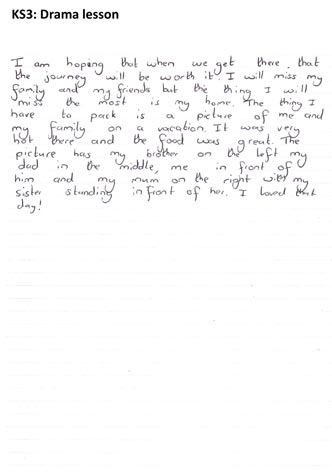 KS3: Drama lesson
I am hoping that when we get there, that
the journey will be worth it. I will miss my
family and my friends but the thing I will
miss the most is my home. The thing I
have to pack is a picture of me and
my family on a vacation. It was very
hot there and the food was great. The
picture has my brother on the left my
dad in the middle, me in front of
him and my mum on the right with my
sister standing in front of her. I loved that
day!